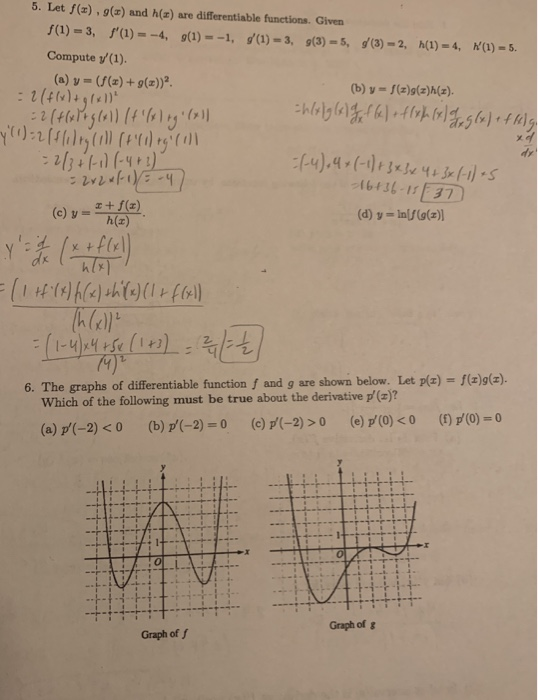 5. Let f(x), g(x) and h(x) are differentiable functions. Given
f(1) = 3, f'(1) = −4, g(1) = −1, g'(1) = 3, g(3) = 5, g'(3) = 2, h(1) = 4, h'(1) = 5.
Compute y'(1).
(a) y = (f(x) + g(x))².
= 2(f(x)+g(x))'
= 2(f(x)+g(x)) (f'(x)+g'(x))
y'(1)=2(f(1)+g(1)) (f'(1)+g'(1))
= 2(3+(-1)(-4+3)
= 2×2×(-1) = -4
(b) y = f(x)g(x)h(x).
=h(x)g(x) d/dx f(x) + f(x)h(x) d/dx g(x) + f(x)g
x d
dx
=(-4)×4×(-1)+3×3×4+3×(-1)×5
=16+36-15 = 37
(c) y = x + f(x) / h(x).
y' = d/dx (x + f(x) / h(x))
= (1+f'(x)h(x)+h'(x)(1+f(x)) / (h(x))²
= (1-4)×4+5×(1+3) / (4)² = 2/4 = 1/2
(d) y = ln[f(g(x)]
6. The graphs of differentiable function f and g are shown below. Let p(x) = f(x)g(x).
Which of the following must be true about the derivative p'(x)?
(a) p'(−2) < 0 (b) p'(−2) = 0 (c) p'(−2) > 0 (e) p'(0) < 0 (f) p'(0) = 0
y
1
O
1
x
Graph of f
y
1
O
x
Graph of g